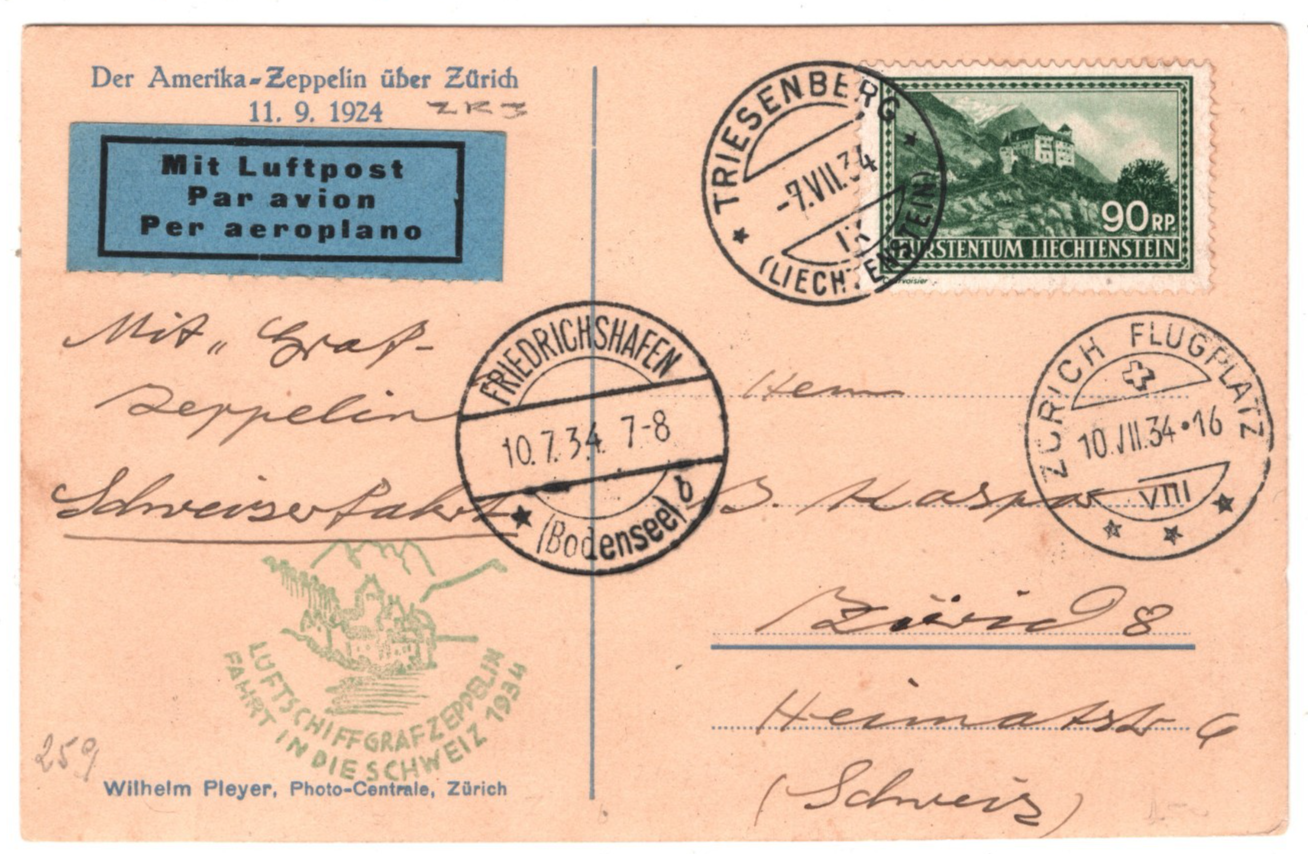 Der Amerika-Zeppelin über Zürich
11. 9. 1924 ZR3
Mit Luftpost
Par avion
Per aeroplano
Mit „Graf-
Zeppelin
Schweizerfahrt
LUFTSCHIFF GRAF ZEPPELIN
FAHRT IN DIE SCHWEIZ 1934
259
Wilhelm Pleyer, Photo-Centrale, Zürich
FRIEDRICHSHAFEN
10.7.34. 7-8
(Bodensee) b
TRIESENBERG
-7.VII.34
IX
(LIECHTENSTEIN)
90 RP.
FÜRSTENTUM LIECHTENSTEIN
Courvoisier
ZÜRICH FLUGPLATZ
10.VII.34•16
VIII
Herrn
B. Kaspar
Zürich 8
Heimatstr 6
(Schweiz)